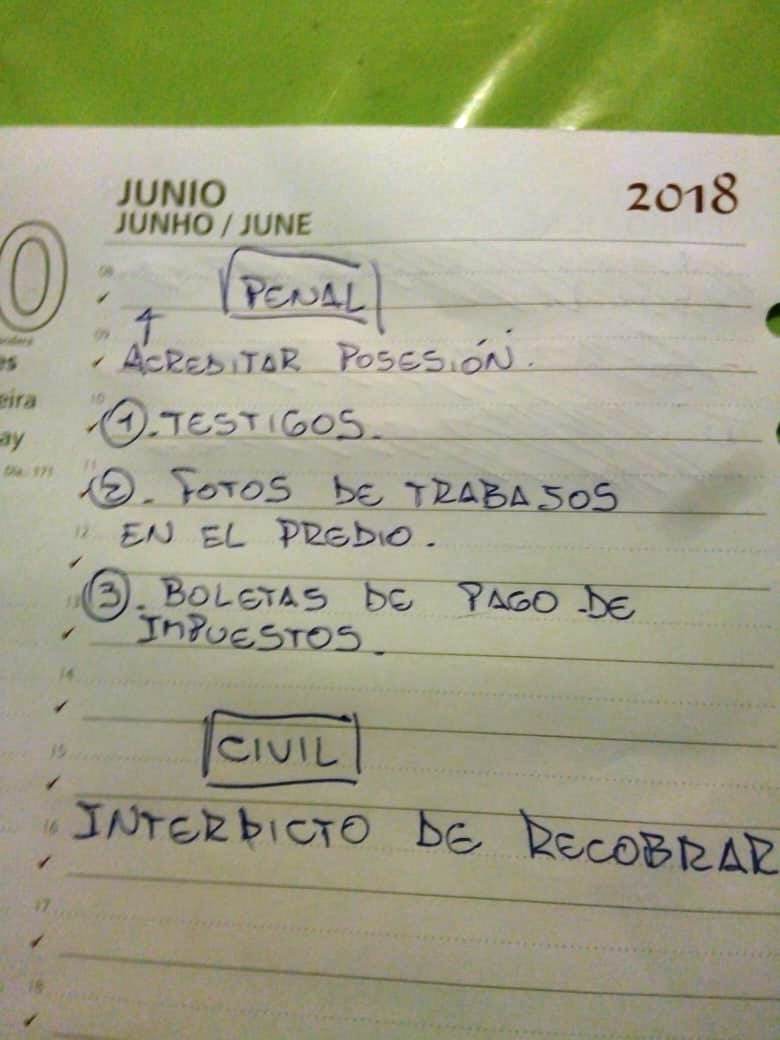 JUNIO
JUNHO / JUNE
2018
0
PENAL
08
09
ACREDITAR POSESIÓN.
es
10
eira
1.- TESTIGOS.
ay
11
Día: 171
2. FOTOS DE TRABAJOS
12
EN EL PREDIO.
13
3. BOLETAS DE PAGO DE
IMPUESTOS.
14
15
CIVIL
16
INTERDICTO DE RECOBRAR
17
18